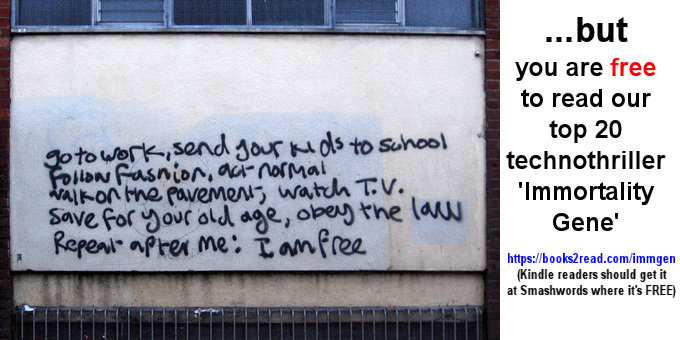 go to work, send your kids to school
follow fashion, act normal
walk on the pavement, watch T.V.
save for your old age, obey the law
Repeat after me: I am free
...but
you are free
to read our
top 20
technothriller
'Immortality
Gene'
https://books2read.com/immgen
(Kindle readers should get it
at Smashwords where it's FREE)